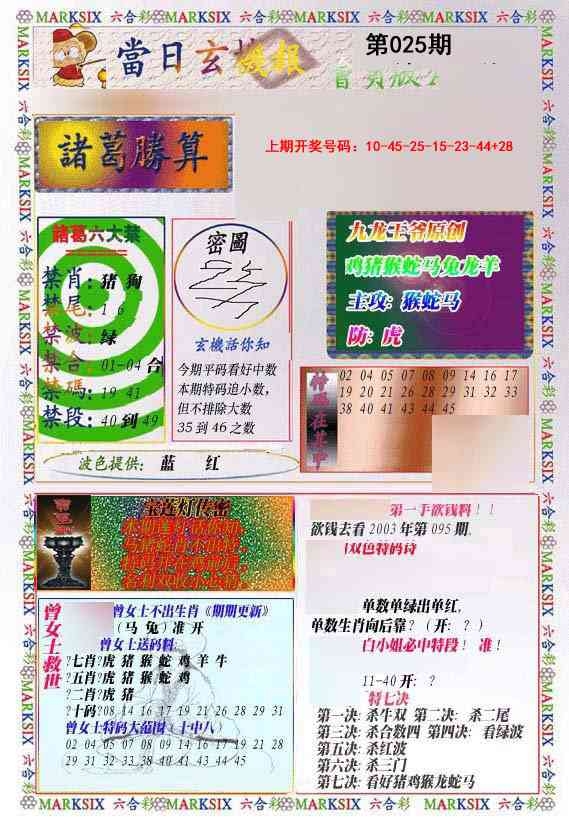 MARKSIX 六合彩 MARKSIX 六合彩 MARKSIX 六合彩 MARKSIX 六合彩 MARKSIX
當日玄機報
第025期
上期开奖号码：10-45-25-15-23-44+28
諸葛勝算
諸葛六大禁
禁肖：豬 狗
禁尾：1 6
禁波：绿
禁合：01-04 合
禁碼：19 41
禁段：40 到 49
密圖
玄機話你知
今期平码看好中数
本期特码追小数，
但不排除大数
35 到 46 之数
九龙王爷原创
鸡猪猴蛇马兔龙羊
主攻：猴蛇马
防：虎
特码在其中
02 04 05 07 08 09 14 16 17
19 20 21 26 28 29 31 32 33
38 40 41 43 44 45
波色提供：蓝 红
宝莲灯传密
曾女士救世
曾女士不出生肖《期期更新》
（马 兔）准 开
曾女士送码料
?七肖?虎 猪 猴 蛇 鸡 羊 牛
?五肖?虎 猪 猴 蛇 鸡
?二肖?虎 猪
?十码?08 14 16 17 19 21 26 28 29 31
曾女士特码大范围（十中八）
02 04 05 07 08 09 14 16 17 19 21 28
29 31 32 33 38 40 41 43 44 45
第一手欲钱料！！
欲钱去看 2003 年第 095 期.
双色特码诗
单数单绿出单红,
单数生肖向后靠？（开：？）
白小姐必中特段！ 准！
11-40 开：？
特七决
第一决：杀牛双 第二决：杀二尾
第三决：杀合数四 第四决：看绿波
第五决：杀红波
第六决：杀三门
第七决：看好猪鸡猴龙蛇马
MARKSIX 六合彩 MARKSIX 六合彩 MARKSIX 六合彩 MARKSIX 六合彩 MARKSIX